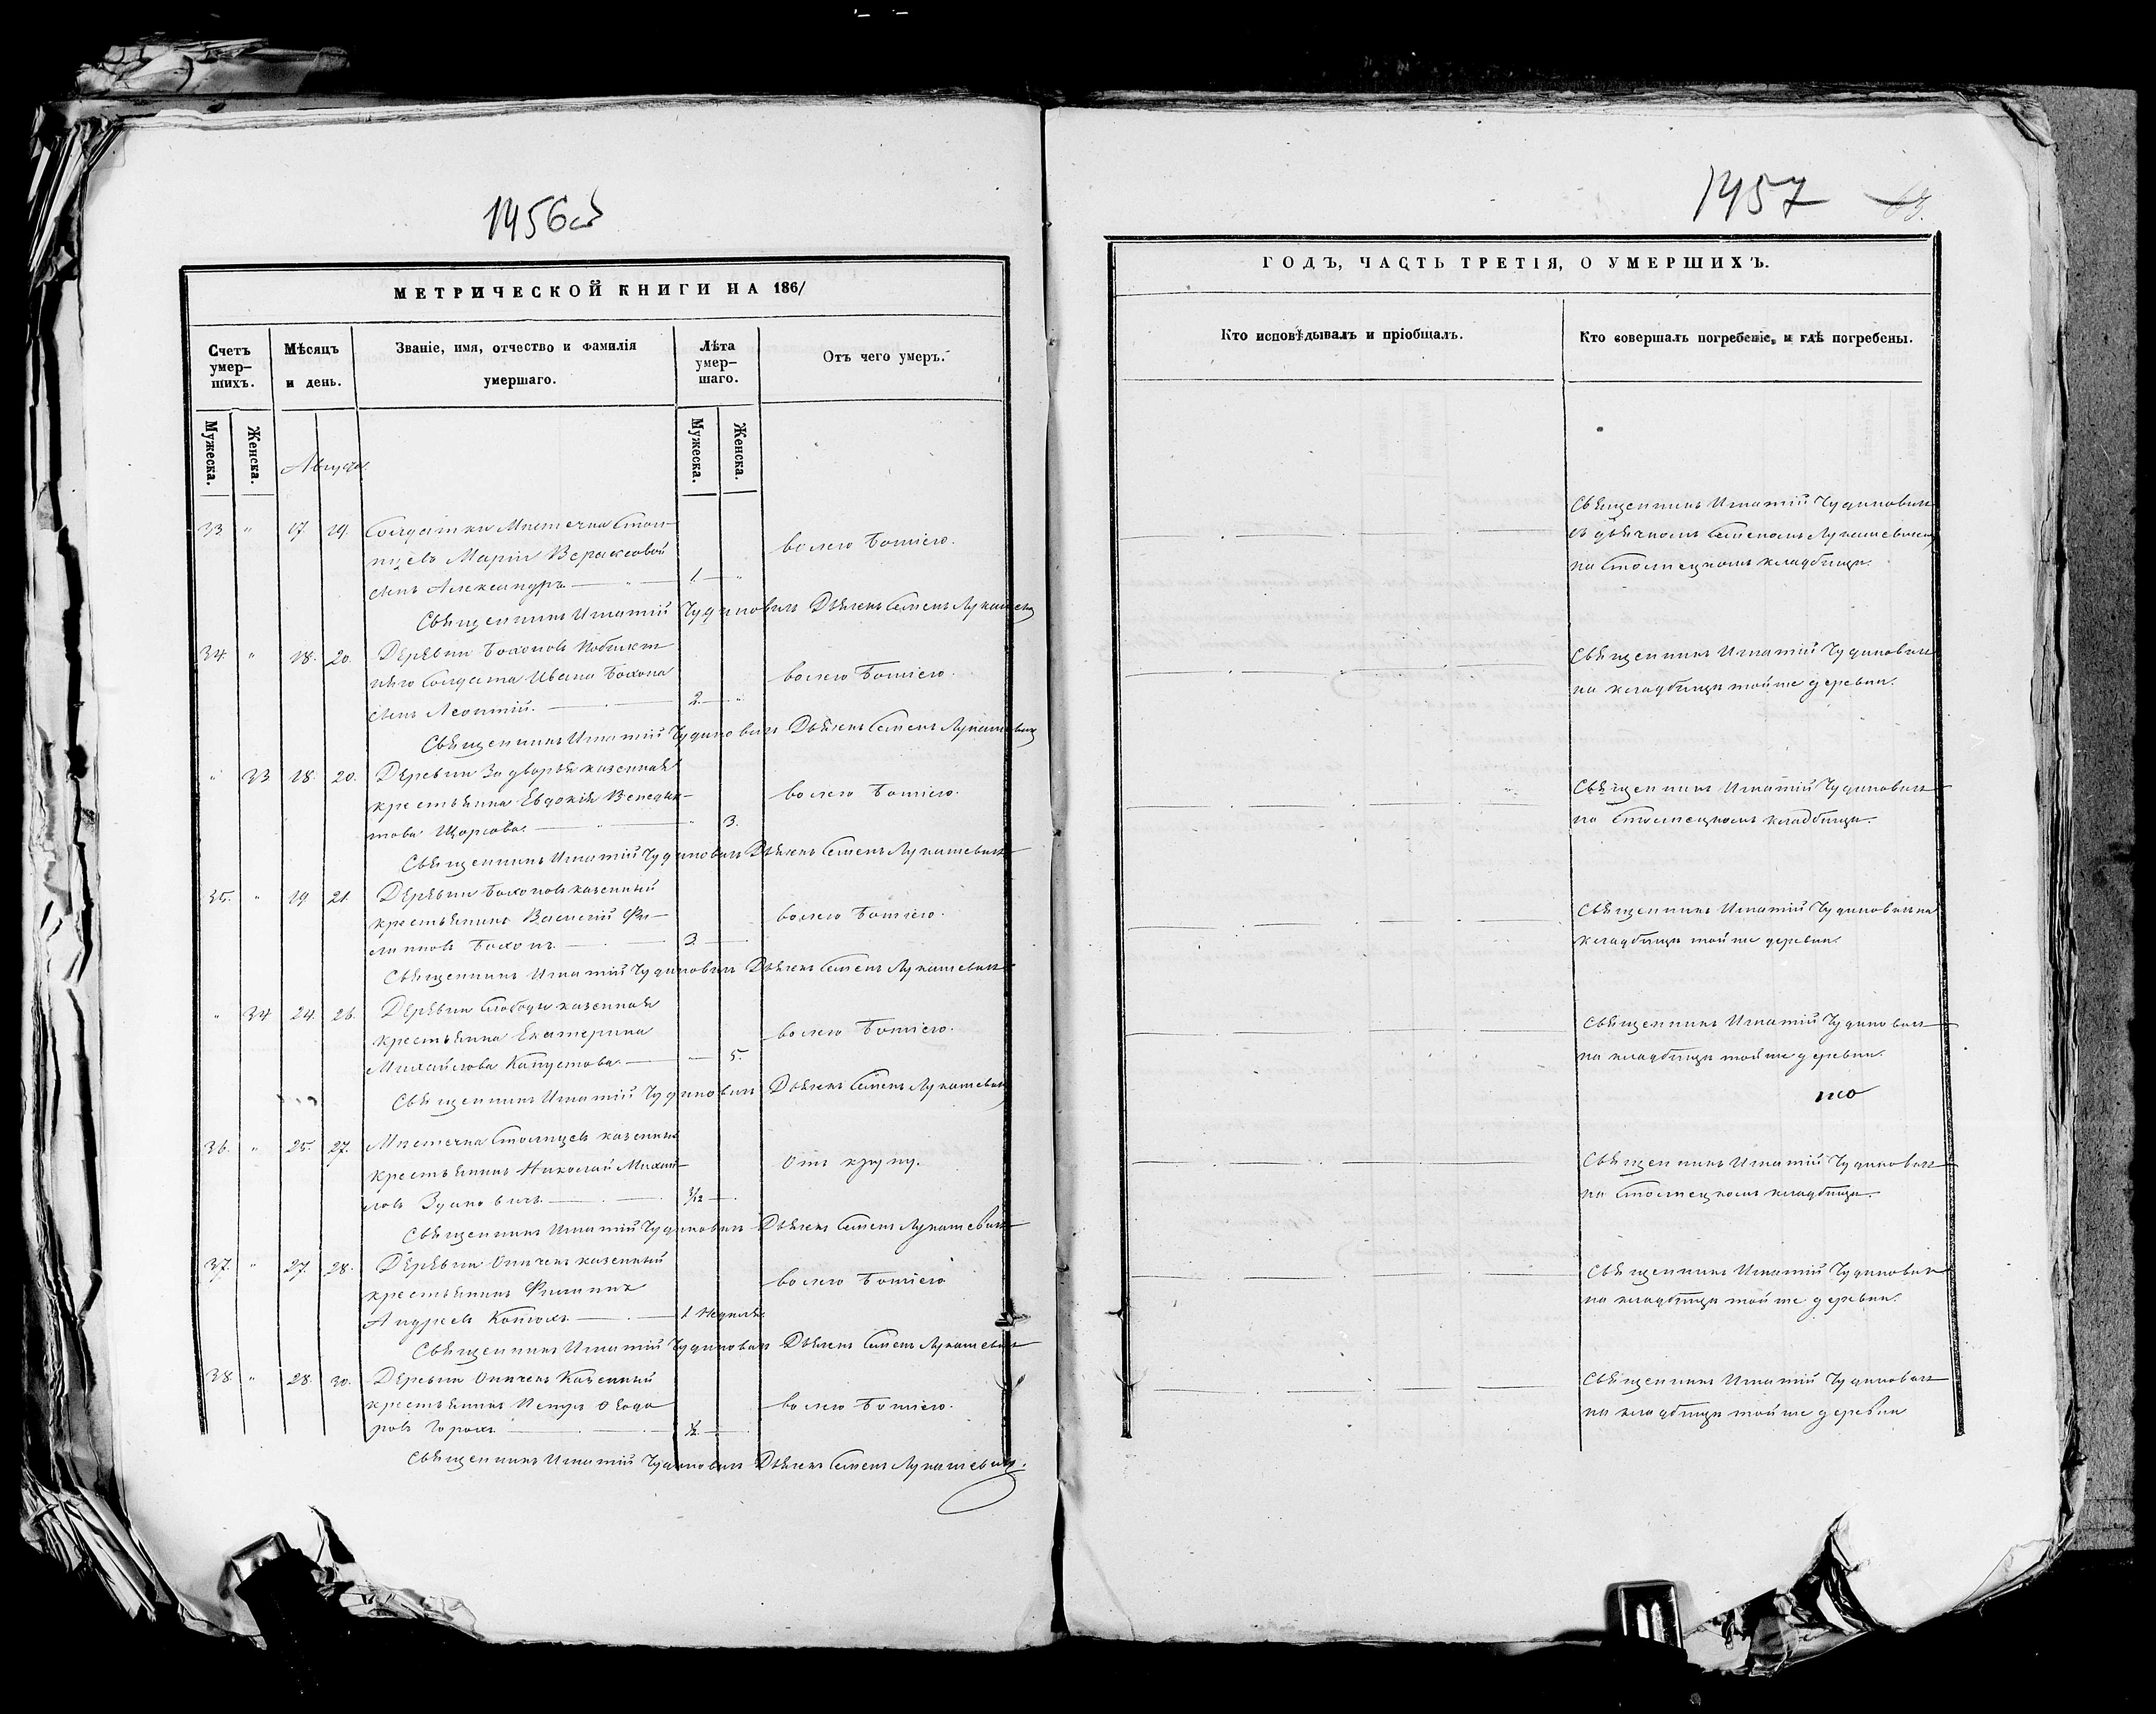 1456об
МЕТРИЧЕСКОЙ КНИГИ НА 1861
Счетъ умер-шихъ.
Мѣсяцъ и день.
Званіе, имя, отчество и фамилія умершаго.
Лѣта умер-шаго.
Отъ чего умеръ.
Мужеска.
Женска.
Мужеска.
Женска.
Августъ.
33 " 17. 19. Солдатки Мѣстечка Стол-
пцевъ Маріи Вераксовой
сынъ Александръ 1. "
волею Божіею.
Священникъ Игнатій Чудиновичъ Дьячекъ Семенъ Лукашевичъ
34. " 18. 20. Деревни
сынъ Леонтій. 2. "
волею Божіею.
Священникъ Игнатій Чудиновичъ Дьячекъ Семенъ Лукашевичъ
" 33 18. 20. Деревни Задворья казенная
крестьянка Евдокія Венедик-
това 3.
волею Божіею.
Священникъ Игнатій Чудиновичъ Дьячекъ Семенъ Лукашевичъ
35. " 19 21. Деревни казенный
крестьянинъ Василій Фи-
липповъ 3.
волею Божіею.
Священникъ Игнатій Чудиновичъ Дьячекъ Семенъ Лукашевичъ
" 34 24. 26. Деревни Слободы казенная
крестьянка Екатерина
Михайлова Капустова. 5.
волею Божіею.
Священникъ Игнатій Чудиновичъ Дьячекъ Семенъ Лукашевичъ
36. " 25. 27. Мѣстечка Столпцевъ казенный
крестьянинъ Николай Михай-
ловъ Здановичъ 3/12
Отъ крупу.
Священникъ Игнатій Чудиновичъ Дьячекъ Семенъ Лукашевичъ
37. " 27. 28. Деревни Опечекъ казенный
крестьянинъ Филиппъ
Андреевъ 1 Недѣля.
волею Божіею
Священникъ Игнатій Чудиновичъ Дьячекъ Семенъ Лукашевичъ
38. " 28. 30. Деревни Опечекъ Казенный
крестьянинъ Петръ Ѳеодо-
ровъ Горохъ ½.
волею Божіею.
Священникъ Игнатій Чудиновичъ Дьячекъ Семенъ Лукашевичъ.
1457
63.
ГОДЪ, ЧАСТЬ ТРЕТІЯ, О УМЕРШИХЪ.
Кто исповѣдывалъ и пріобщалъ.
Кто совершалъ погребеніе, и гдѣ погребены.
Священникъ Игнатій Чудиновичъ
съ дьячкомъ Семеномъ Лукашевичемъ
на Столпецкомъ кладбищѣ.
Священникъ Игнатій Чудиновичъ
на кладбищѣ той же деревни.
Священникъ Игнатій Чудиновичъ
на Столпецкомъ кладбищѣ.
Священникъ Игнатій Чудиновичъ на
кладбищѣ той же деревни.
Священникъ Игнатій Чудиновичъ
на кладбищѣ той же деревни.
Священникъ Игнатій Чудиновичъ
на Столпецкомъ кладбищѣ.
Священникъ Игнатій Чудиновичъ
на кладбищѣ той же деревни.
Священникъ Игнатій Чудиновичъ
на кладбищѣ той же деревни